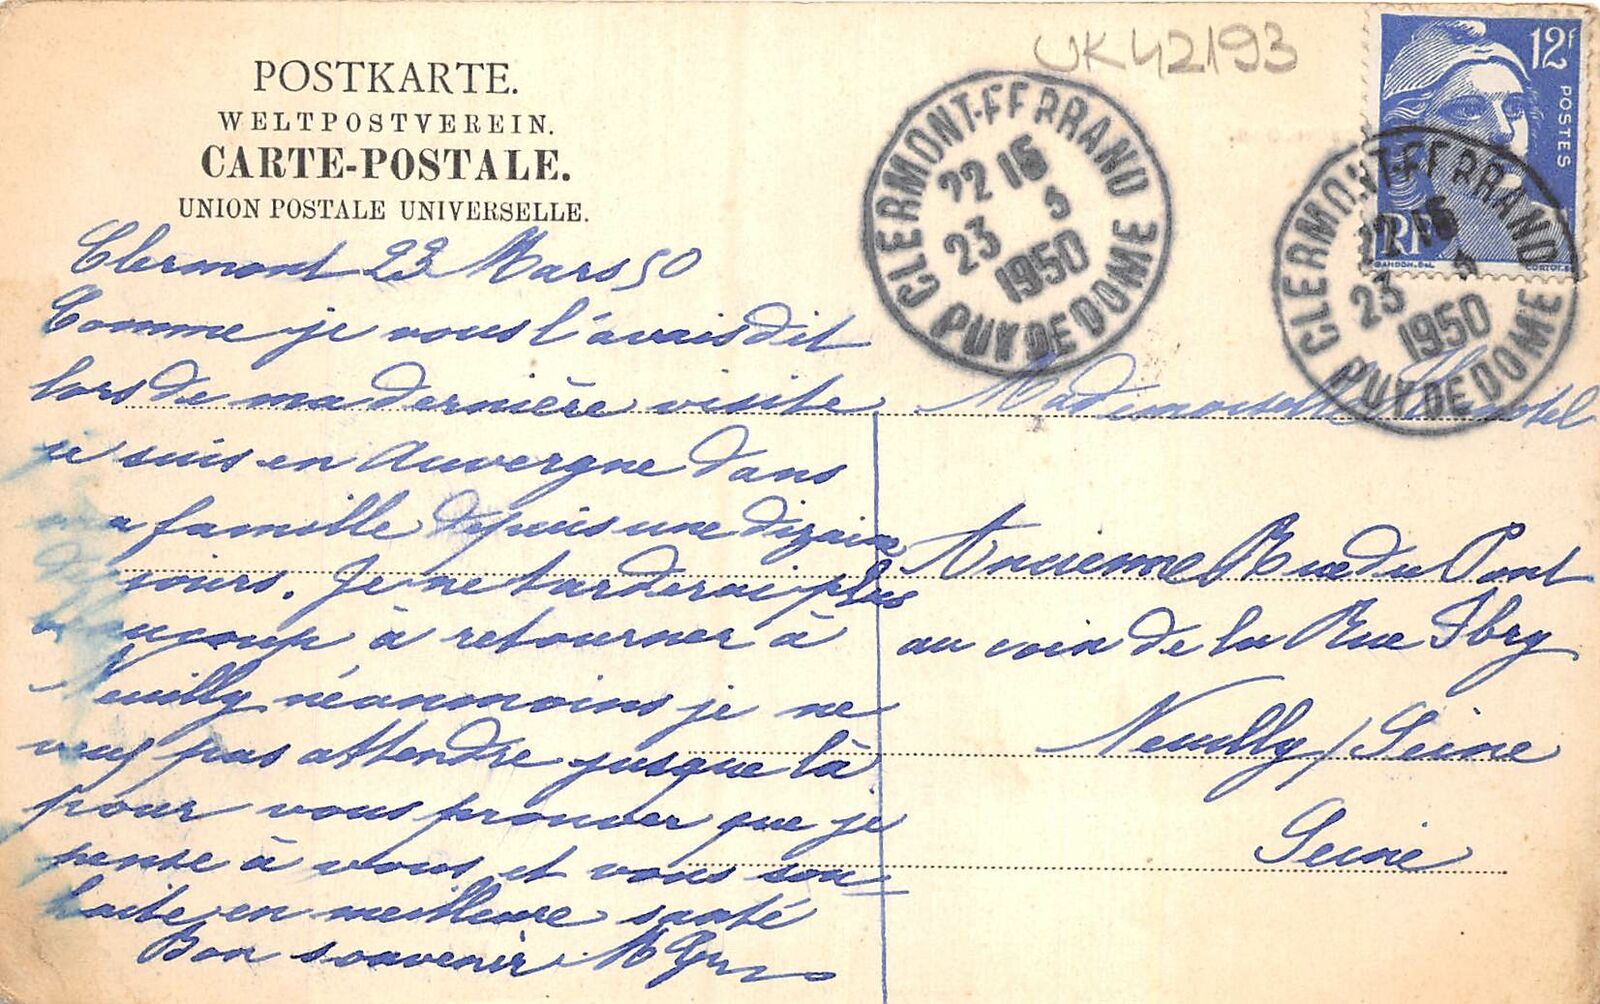 POSTKARTE.
WELTPOSTVEREIN.
CARTE-POSTALE.
UNION POSTALE UNIVERSELLE.
UK42193
12F
POSTES
RF
GANDON. DEL.
CLERMONT-FERRAND
22 15
23 3
1950
PUY DE DOME
CLERMONT-FERRAND
22 15
23 3
1950
PUY DE DOME
Clermont 23 Mars 50
Comme je vous l'avais dit
lors de ma dernière visite
je suis en Auvergne dans
ma famille depuis une dizaine
de jours. Je ne tarderai plus
beaucoup à retourner à
Neuilly néanmoins je ne
veux pas attendre jusque là
pour vous prouver que je
pense à vous et vous sou-
haite en meilleure santé
Bon souvenir
Mademoiselle
Ancienne Rue du Pont
au coin de la Rue Ibry
Neuilly / Seine
Seine